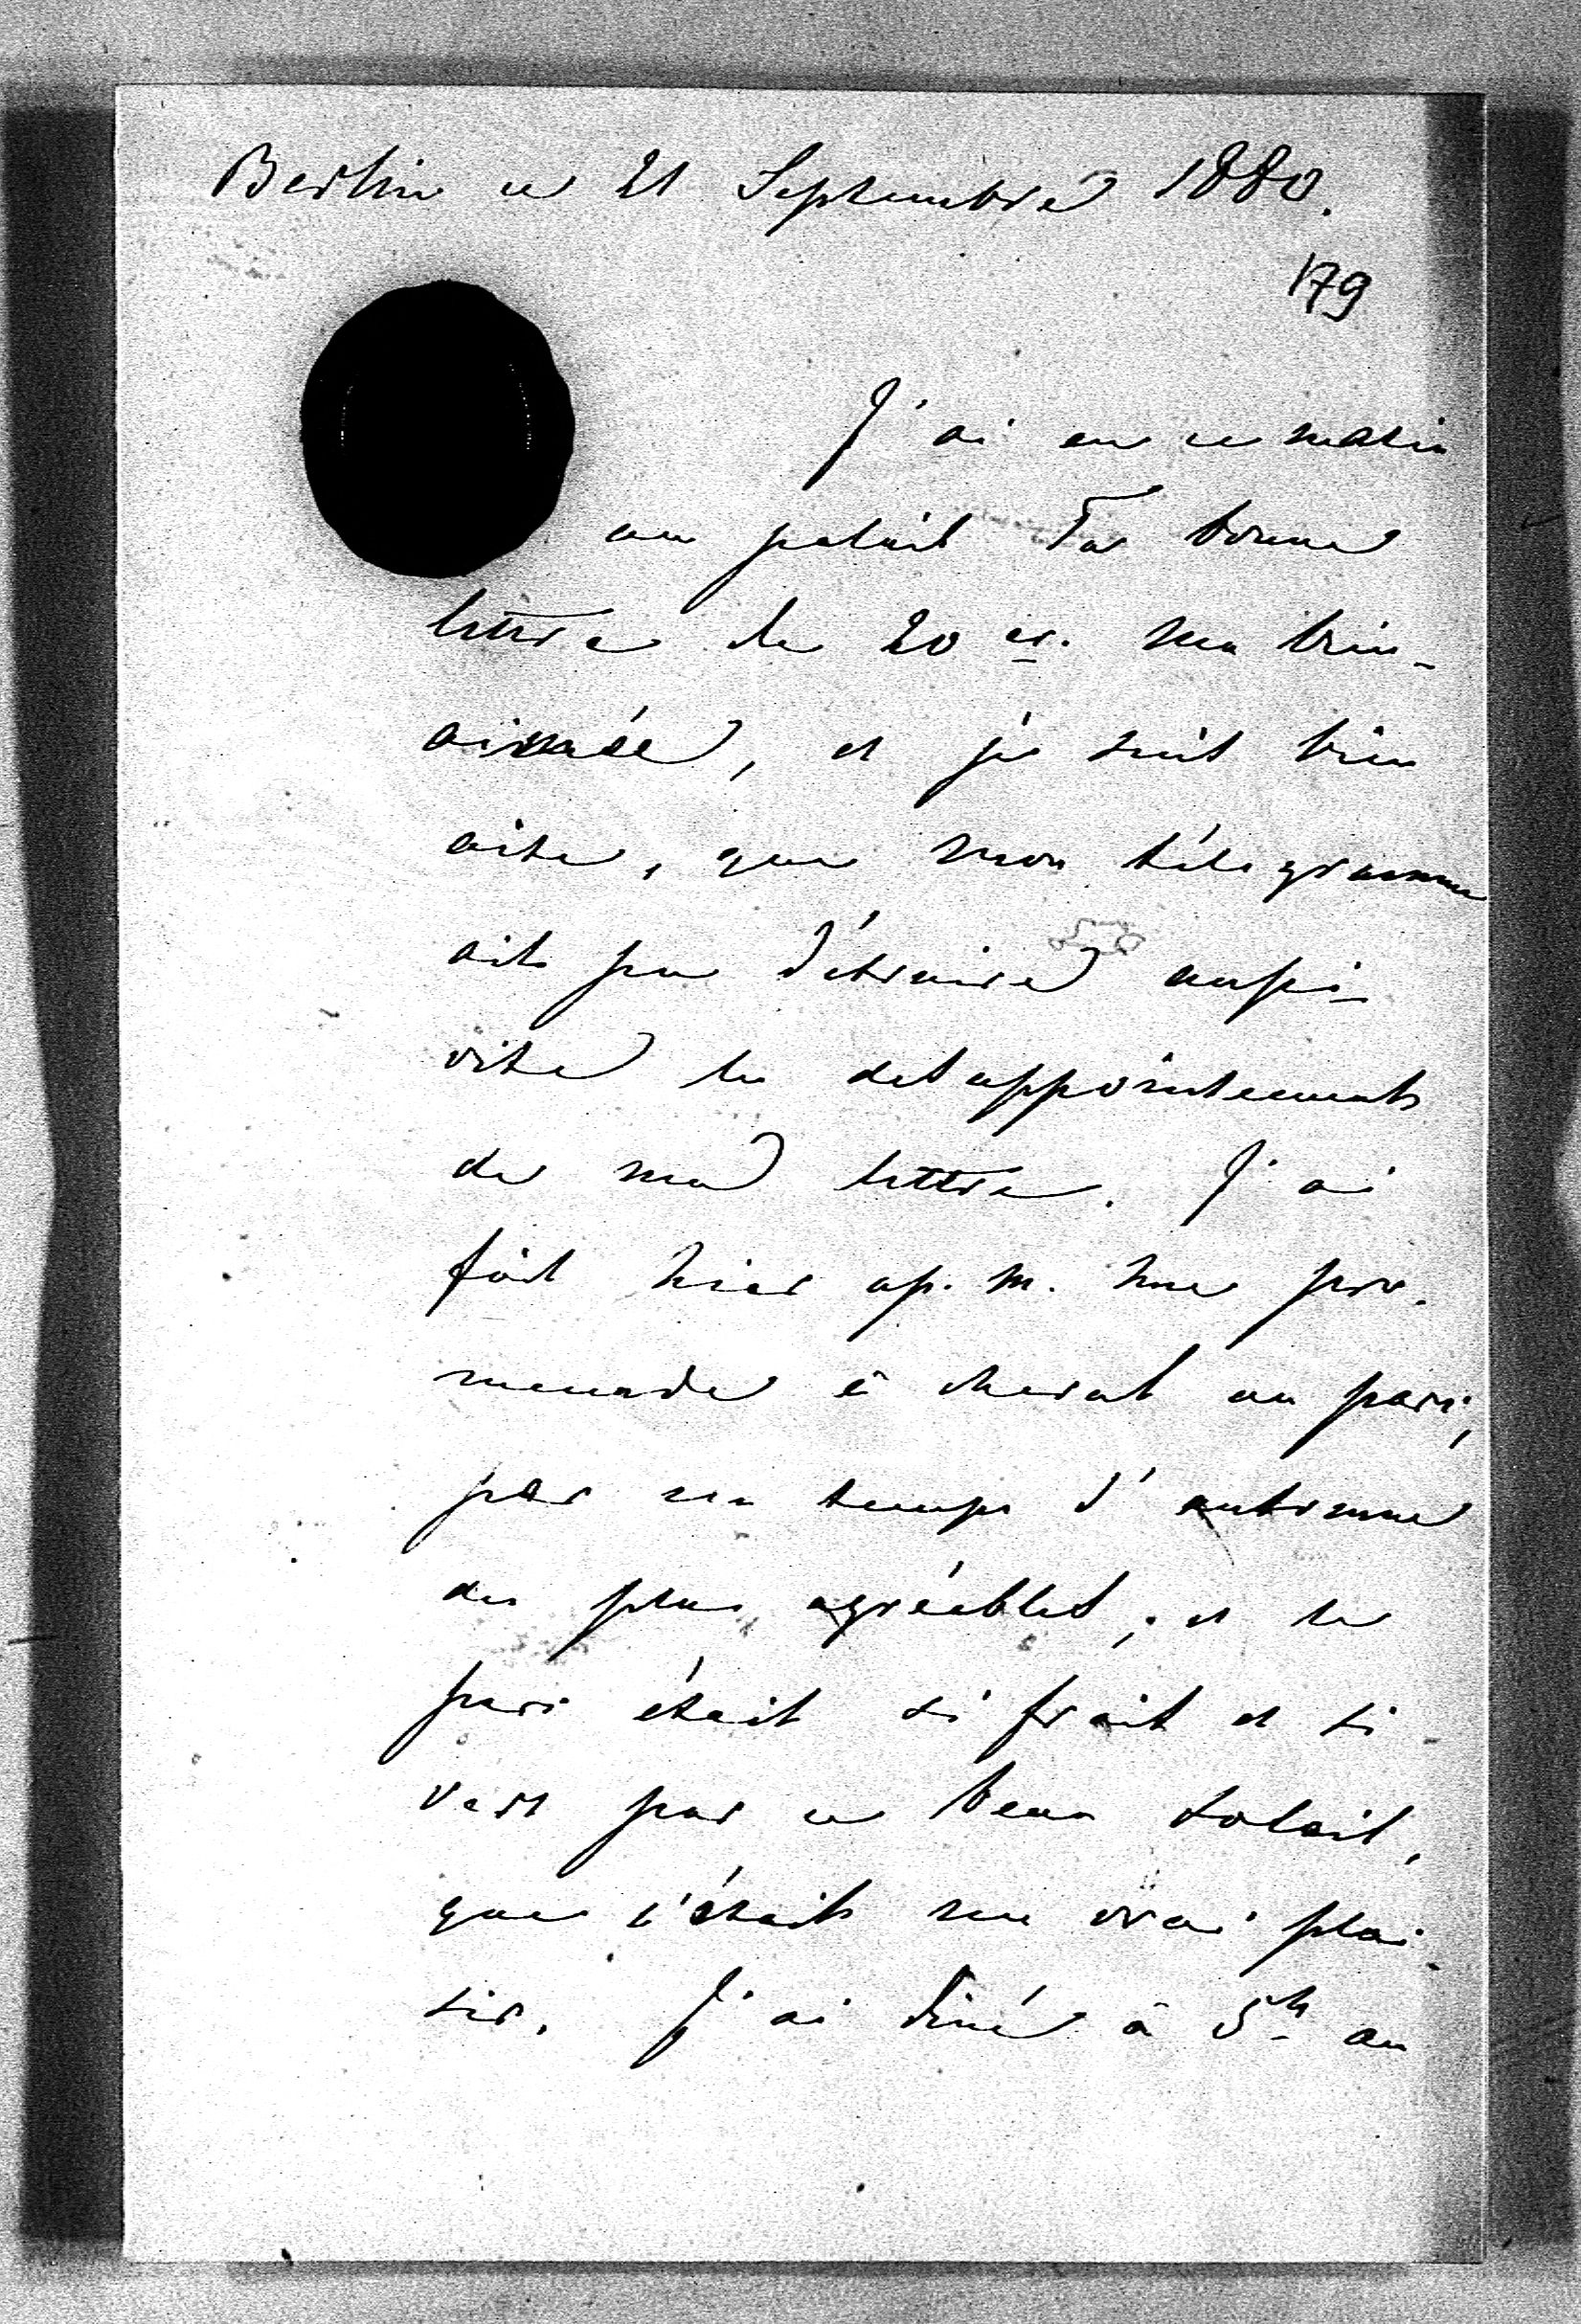 Berlin ce 21 Septembre 1880.
179
J'ai eu ce matin
au palais Ta bonne
lettre de 20 cr. ma bien-
aimée, et je suis bien
aise, que mon télegramme
ait pu détruire aussi-
vite le desappointement
de ma lettre. J'ai
fait hier ap. m. une pro-
menade à cheval au parc,
par un temps d'automne
des plus agréables, et le
parc était si frais et si
vert par ce beau soleil,
que c'était un vrai plai-
sir. J'ai diné à 5h au